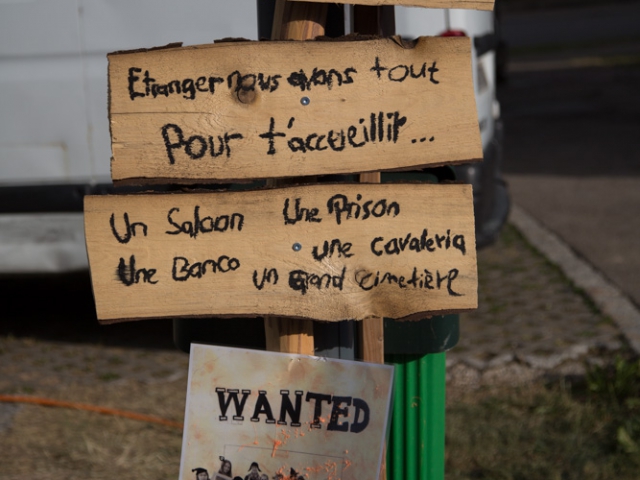 Etranger nous avons tout
Pour t'accueillir...
Un Saloon Une Prison
une cavaleria
Une Banco
un grand cimetière
WANTED